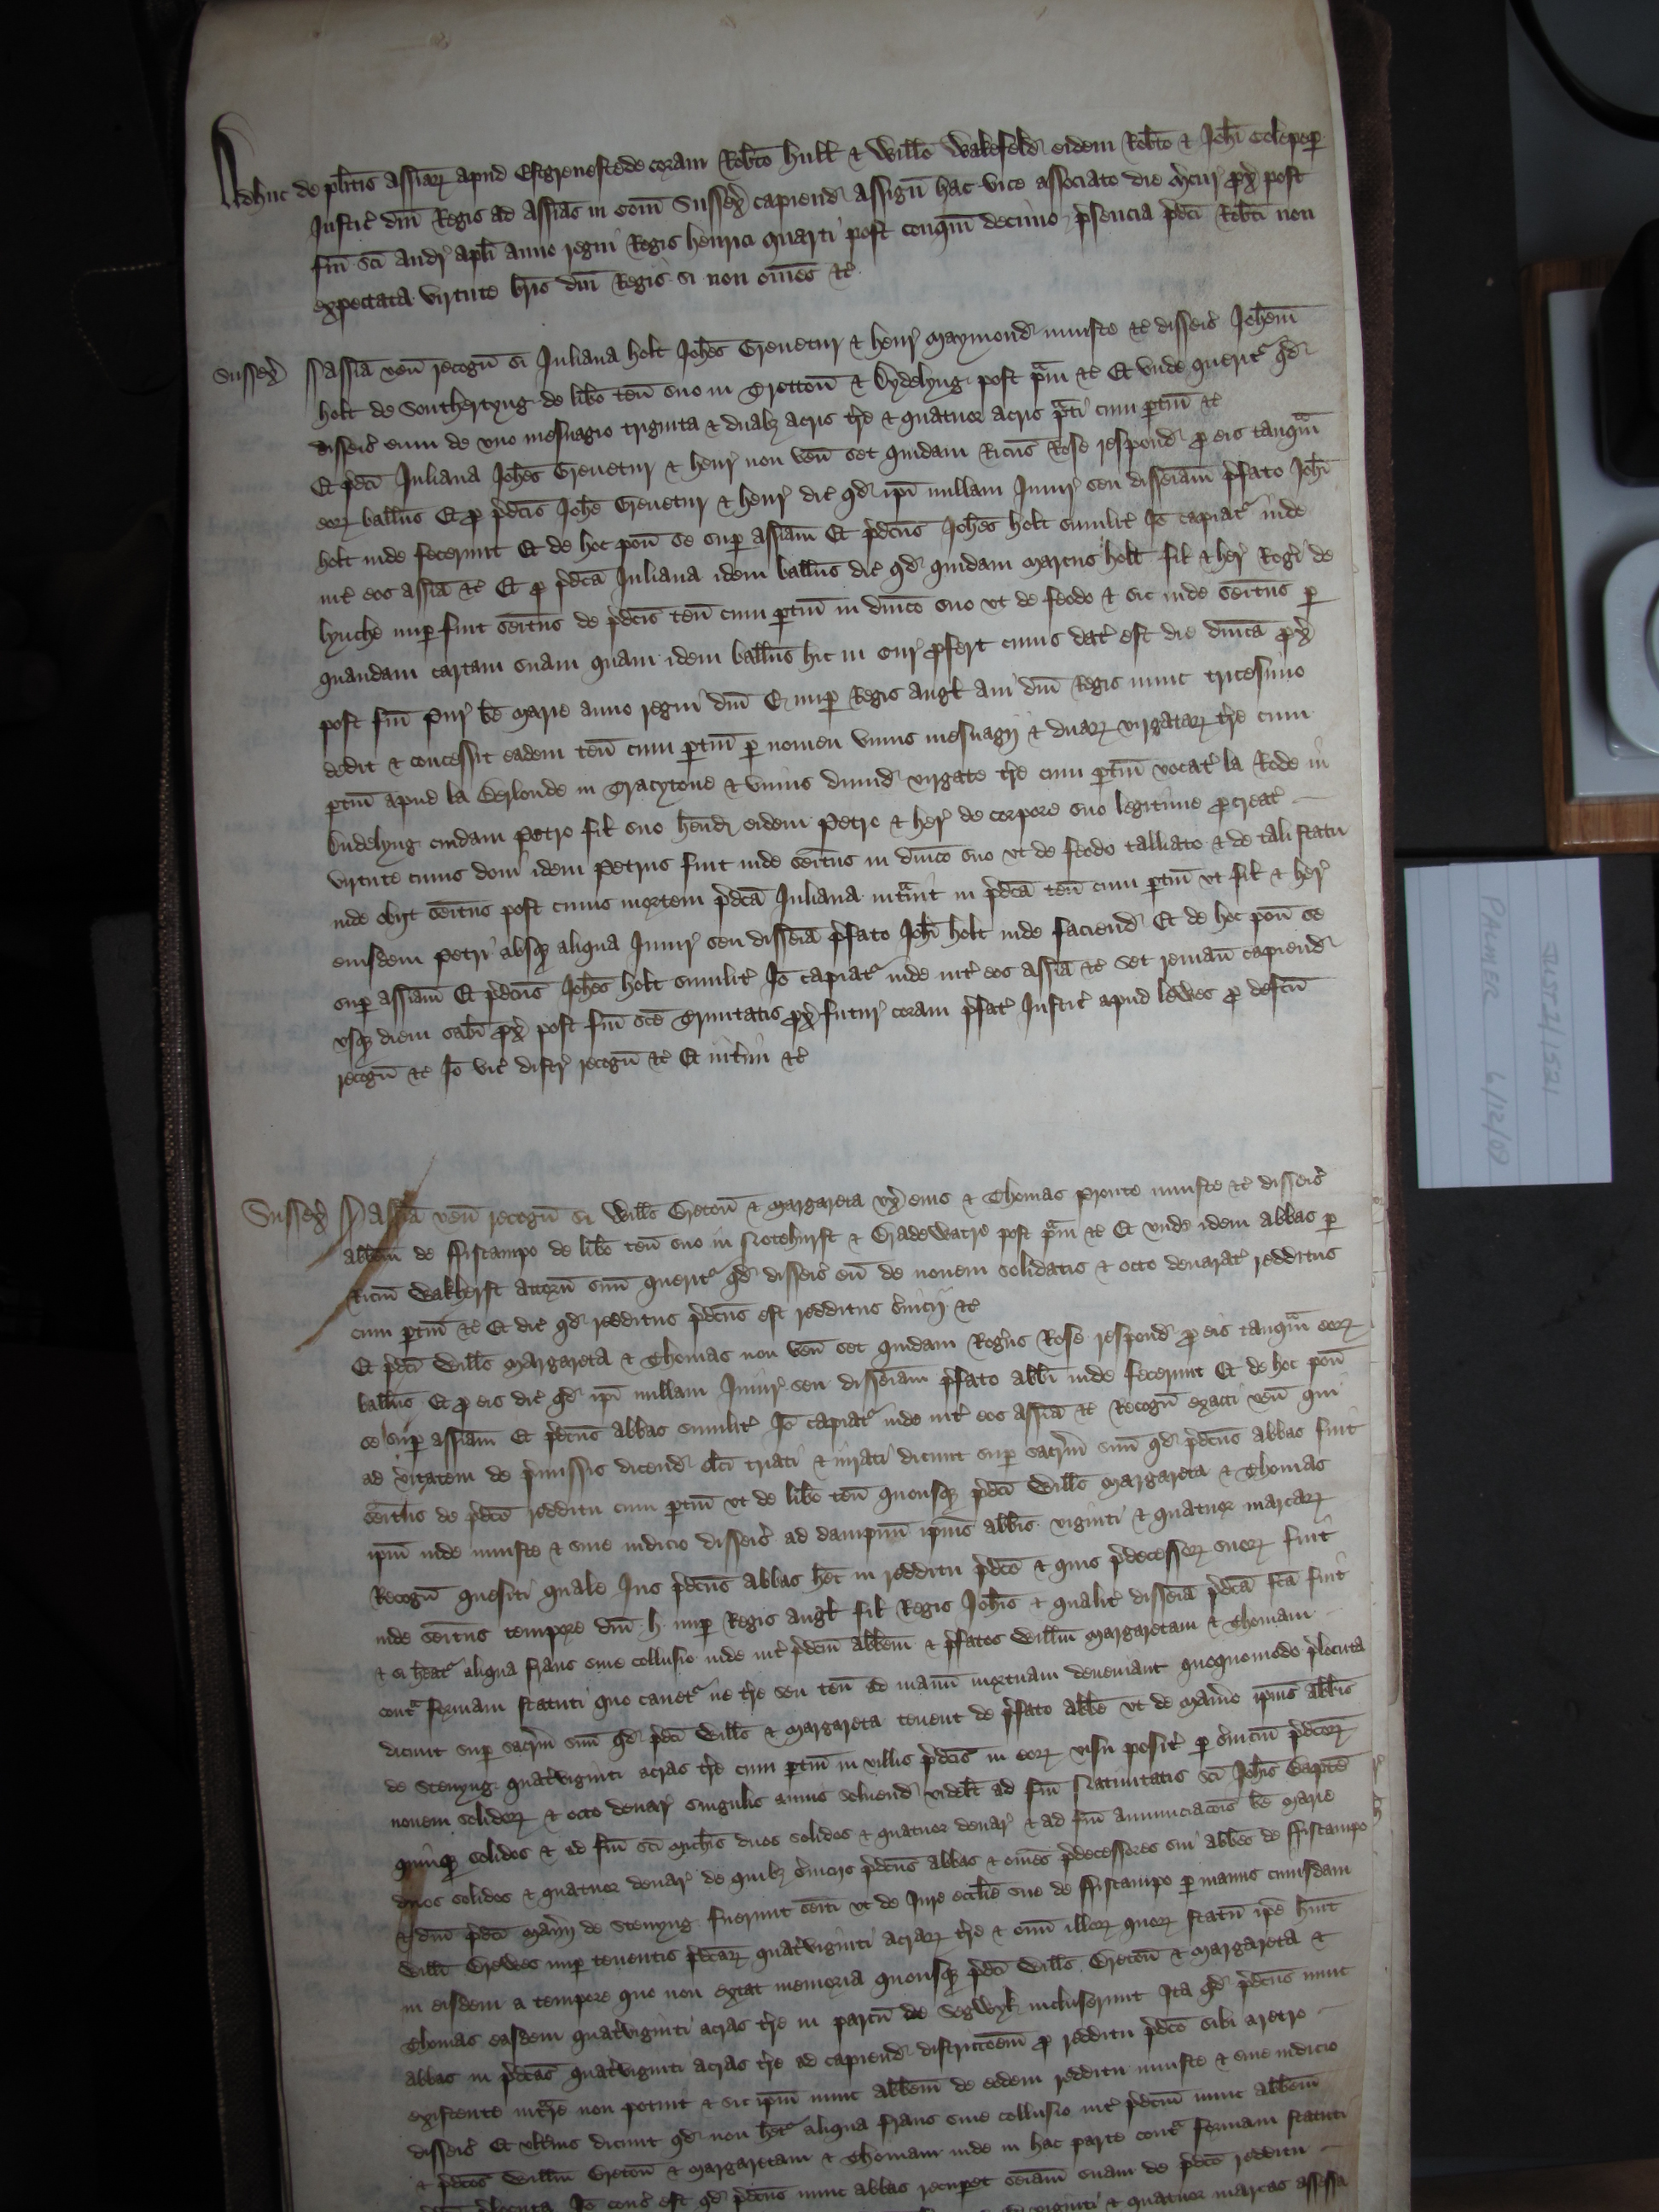 Adhuc de plitis assiar apud Estgrenestede coram Robto Hull & Willo Wakefeld eidem Robto & Johi Colepep
Justic dni Regis ad assias in com Sussex capiend assign hac vice associato die Mercur px post
fm sci Andr apli anno regni Regis Henrici quarti post conqm decimo psencia pdci Robti non
expectata virtute bris dni Regis si non omes &c
Sussex Assia ven recogn si Juliana Holt Johes Grenetur & Henr Maymond iniuste &c disseis Johem
Holt de Southertyng de libo ten suo in Tretton & Dydelyng post pm &c Et unde querit qd
disseis eum de uno mesuagio triginta & duab acris tre & quatuor acris pti cum ptin &c
Et pdci Juliana Johes Grenetur & Henr non ven set quidam Ricus Rose respond p eis tanqm
eor ballus Et p pdcis Johe Grenetur & Henr dic qd ipi nullam Iniur seu disseiam pfato Johi
Holt inde fecerunt Et de hoc pon se sup assiam Et pdcus Johes Holt similit Io capiat inde
int eos assia &c Et p pdca Juliana idem ballus dic qd quidam Marcus Holt fil & her Rogi de
Lynche nup fuit seitus de pdcis ten cum ptin in dnico suo ut de feodo & sic inde seitus p
quandam cartam suam quam idem ballus hic in cur pfert cuius dat est die dnica px
post fm Pur be Marie anno regni dni E nup Regis Angl aui dni Regis nunc tricesimo
dedit & concessit eadem ten cum ptin p nomen unius mesuagij & duar virgatar tre cum
ptin apud la Berlonde in Tracytone & unius dimid virgate tre cum ptin vocat la Rode in
Dudelyng cuidam Petro fil suo hend eidem Petro & her de corpore suo legitime procreat
virtute cuius doni idem Petrus fuit inde seitus in dnico suo ut de feodo talliato & de tali statu
inde obijt seitus post cuius mortem pdca Juliana intrauit in pdca ten cum ptin ut fil & her
eiusdem Petri absq aliqua Iniur seu disseia pfato Johi Holt inde faciend Et de hoc pon se
sup assiam Et pdcus Johes Holt similit Io capiat inde int eos assia &c Set reman capiend
usq diem sabi px post fm sce Trinitatis px futur coram pfat Justic apud Lewes p defcu
recogn &c Io vic distr recogn &c Et intim &c
Sussex Assia ven recogn si Wills Greton & Margareta ux eius & Thomas Pronte iniuste &c disseis
abbem de Ffiscampo de libo ten suo in Notehurst & Gadewatre post pm &c Et unde idem abbas p
Ricm Wakherst attorn suu querit qd disseis eu de nouem solidatis & octo denarat redditus
cum ptin &c Et dic qd redditus pdcus est redditus seruicij &c
Et pdci Wills Margareta & Thomas non ven set quidam Rogus Rose respond p eis tanqm eor
ballus Et p eis dic qd ipi nullam Iniur seu disseiam pfato abbi inde fecerunt Et de hoc pon
se sup assiam Et pdcus abbas similit Io capiat inde int eos assia &c Recogn exacti ven qui
ad vitatem de pmissis dicend elci triati & iurati dicunt sup sacrm suu qd pdcus abbas fuit
seitus de pdco redditu cum ptin ut de libo ten quousq pdci Wills Margareta & Thomas
ipm inde iniuste & sine iudicio disseis ad dampnu ipius abbis viginti & quatuor marcar
Recogn quesiti quale Jus pdcus abbas het in redditu pdco & quis pdecessor suor fuit
inde seitus tempore dni H nup Regis Angl fil Regis Johis & qualit disseia pdca fca fuit
& si heat aliqua fraus siue collusio inde int pdcm abbem & pfatos Willm Margaretam & Thomam
cont formam statuti quo cauet ne tre seu ten ad manu mortuam deueniant quoquomodo plocuta
dicunt sup sacrm suu qd pdci Wills & Margareta tenent de pfato abbe ut de manio ipius abbis
de Stenyng quatviginti acras tre cum ptin in villis pdcis in eor visu posit p seruiciu pdcor
nouem solidor & octo denar singulis annis soluend videlt ad fm Natiuitatis sci Johis Bapte
quinq solidos & ad fm sci Michis duos solidos & quatuor denar & ad fm annunciacois be Marie
duos solidos & quatuor denar de quib seruicijs pdcus abbas & omes pdecessores sui abbes de Ffiscampo
& dni pdci manij de Stenyng fuerunt seiti ut de Jure ecclie sue de Ffiscampo p manus cuiusdam
Willi Grewes nup tenentis pdcar quatviginti acrar tre & omi illor quor statu ipe huit
in eisdem a tempore quo non extat memoria quousq pdci Wills Greton & Margareta &
Thomas easdem quatviginti acras tre in parcu de Segwyk incluserunt Ita qd pdcus nunc
abbas in pdcas quatviginti acras tre ad capiend districcoem p redditu pdco sibi aretro
existente intre non potuit & sic ipm nunc abbem de eodem redditu iniuste & sine iudicio
disseis Et ultius dicunt qd non het aliqua fraus siue collusio int pdcm nunc abbem
& pdcos Willm Greton & Margaretam & Thomam inde in hac parte cont formam statuti
plocuta Io cons est qd pdcus nunc abbas recupet seiam suam de pdco redditu
viginti & quatuor marcas assessa
JUST 2/1521
PALMER 6/12/09